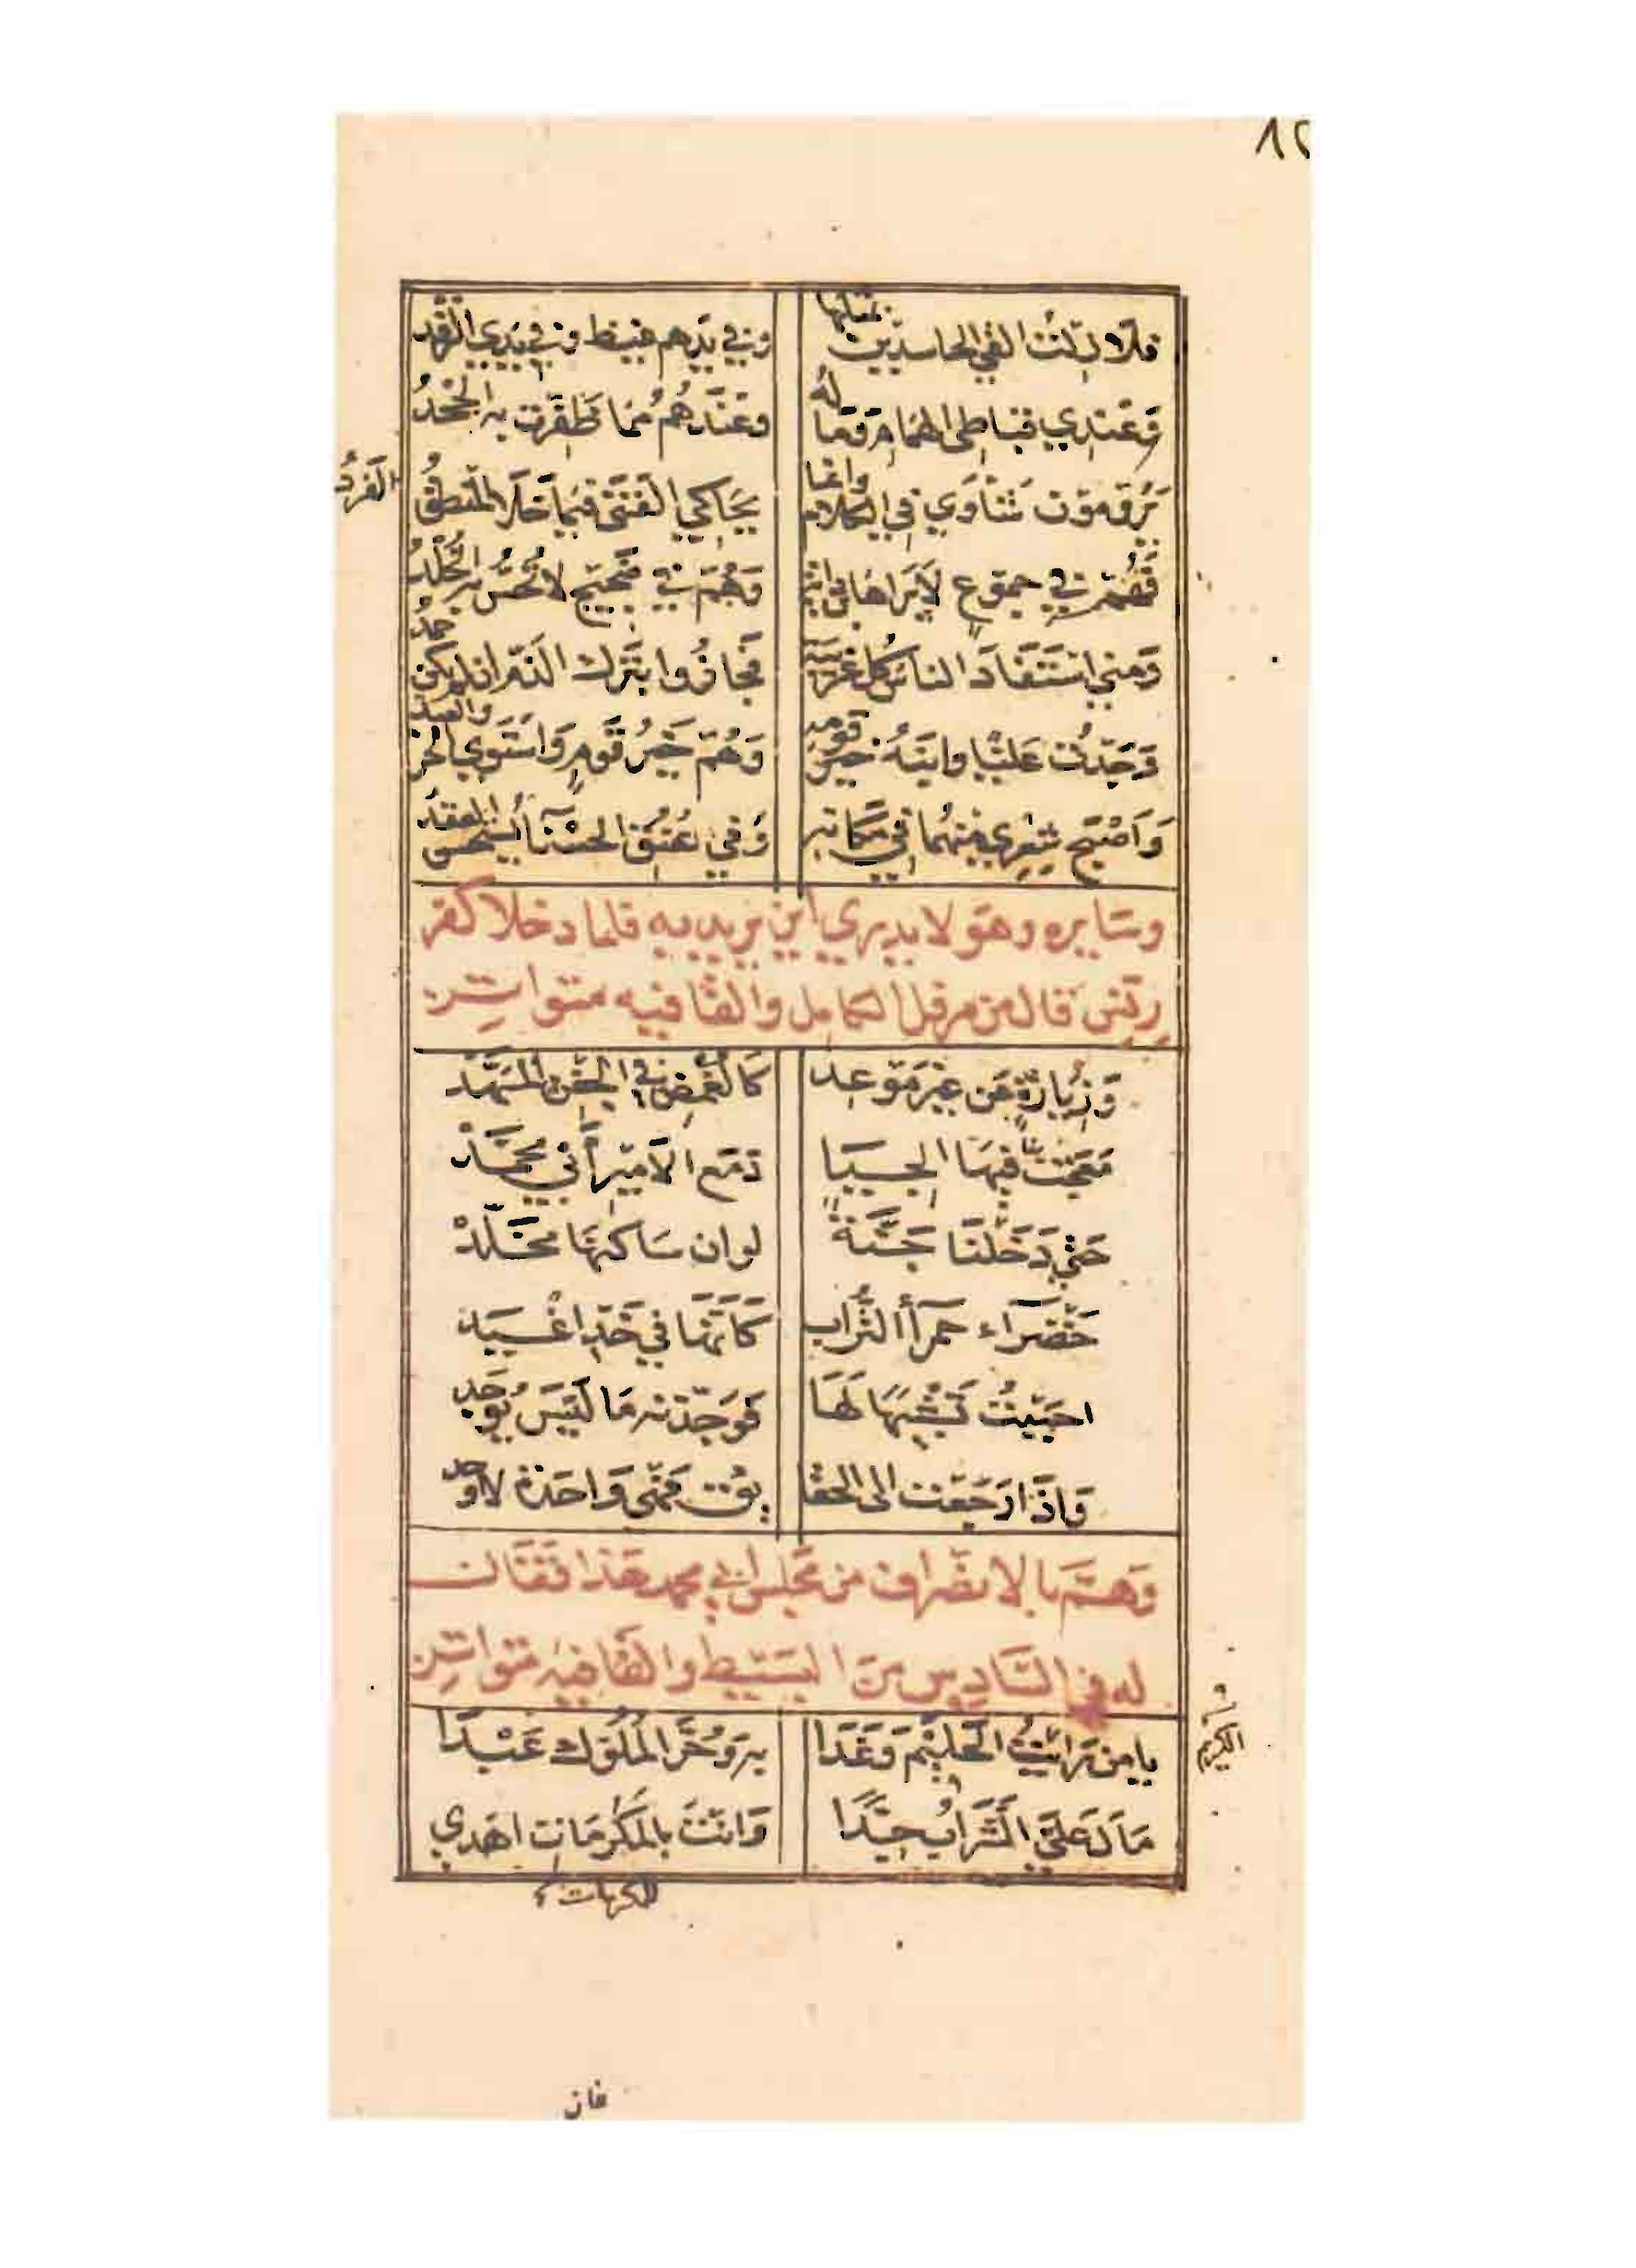 ٨٢
فلا زلت القى الحاسدين بمثلها وفي يدهم غيظ وفي يدي الرفد
وَعندي قباطي الهمام وَماله وعندهم مما ظفرت به الجحدُ
يرومون شاوي في الكلام وانما يحاكي الفتى فيما خلا المنطق
القردُ
فهم في جموع لا يراها ابن وَهم في ضجيج لا تحس به الخلد
وَمني استفاد الناس كل غريبة فجازوا بترك الذم ان لم يكن حمدُ
وَجدت عليّا وابنه خير قومه وَهم خير قوم وَاستوي الحر والعبد
وَاصبح شعري منهما في مكانه وَفي عنق الحسنآ يستحسن العقد
وسايره وهو لا يدري اين يريد به فلما دخلا كفر
زنس قال من مرفل الكامل والقافيه متواتر
وَزيارة عن غير موعد كالغمض في الجفن المسهّد
مَعجت بنا فيها الجيا د مع الامير أبي محمّد
حتى دَخلنا جَنّة لو ان ساكنها مخلّد
خضرَاء حمرآ التراب كأنّها في خد اغيد
احببت تشبيهًا لها فوَجدته مَا ليس يُوجد
وَاذا رجعت الى الحقا يق فهي وَاحدة لاوحد
وَهمّ بالانصراف من مجلس ابي محمد هَذا فقال
له في السّادس من البسيط والقافيه متواتر
يا من رايت الحليم وَغدا به وَحرّ الملوك عَبدا
الكريم
مَال عليّ الشراب جدّا وَانت بالمكرمَات اهدي
للمكرمات
فان